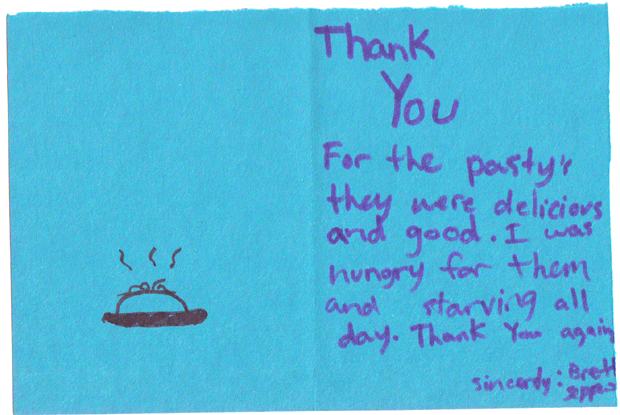 Thank
You
For the pasty's
they were delicious
and good. I was
hungry for them
and starving all
day. Thank You again
sincerdy: Brett